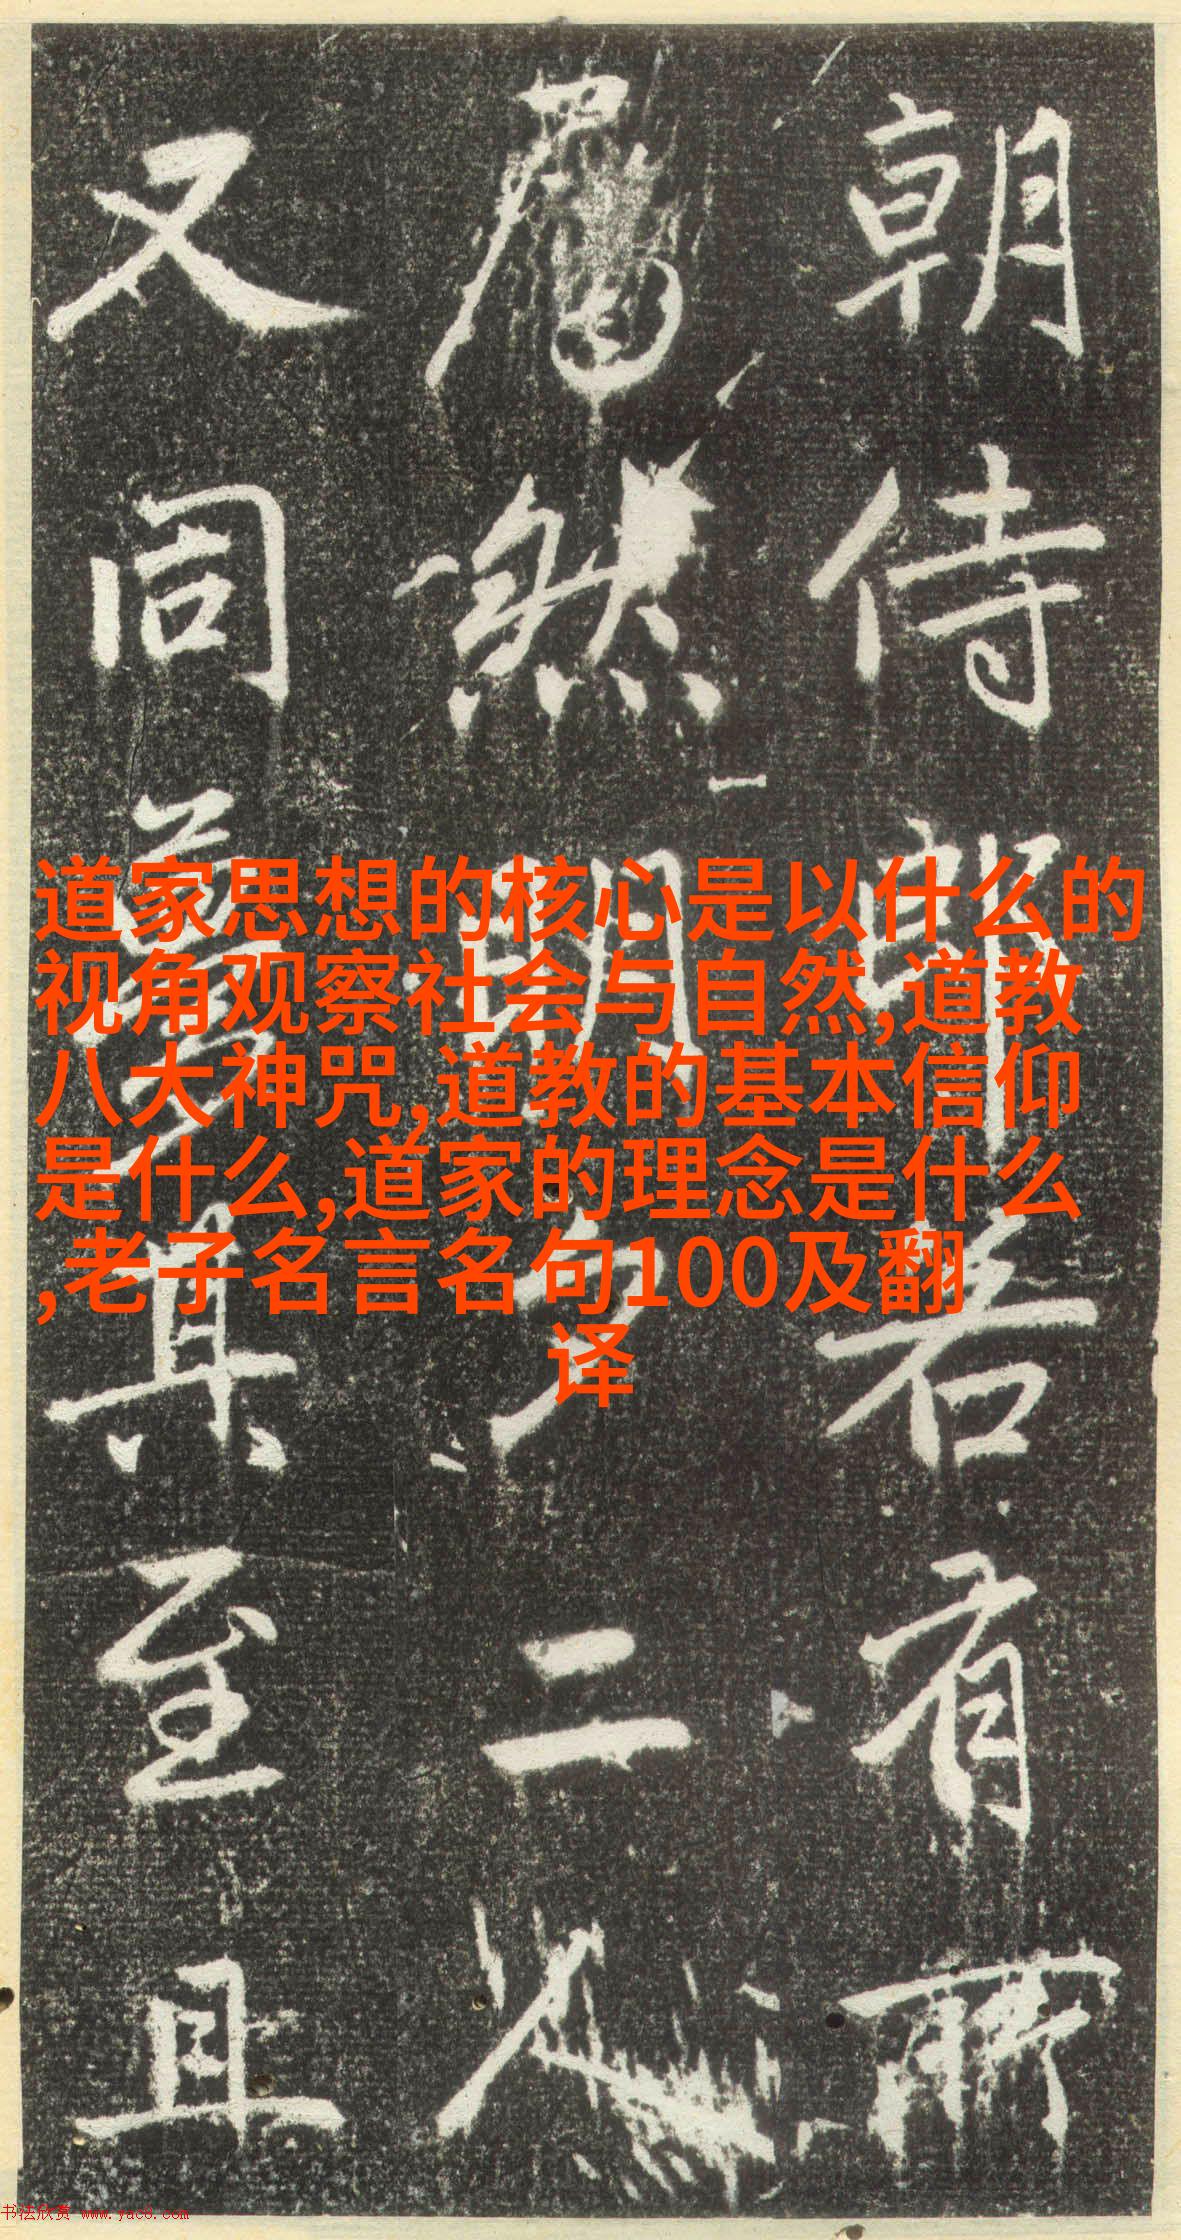 朝侍郎若有所
然明二人
又同其至且
道家思想的核心是以什么的
视角观察社会与自然,道教
八大神咒,道教的基本信仰
是什么,道家的理念是什么
,老子名言名句100及翻
译
书法欣赏 www.yac8.com